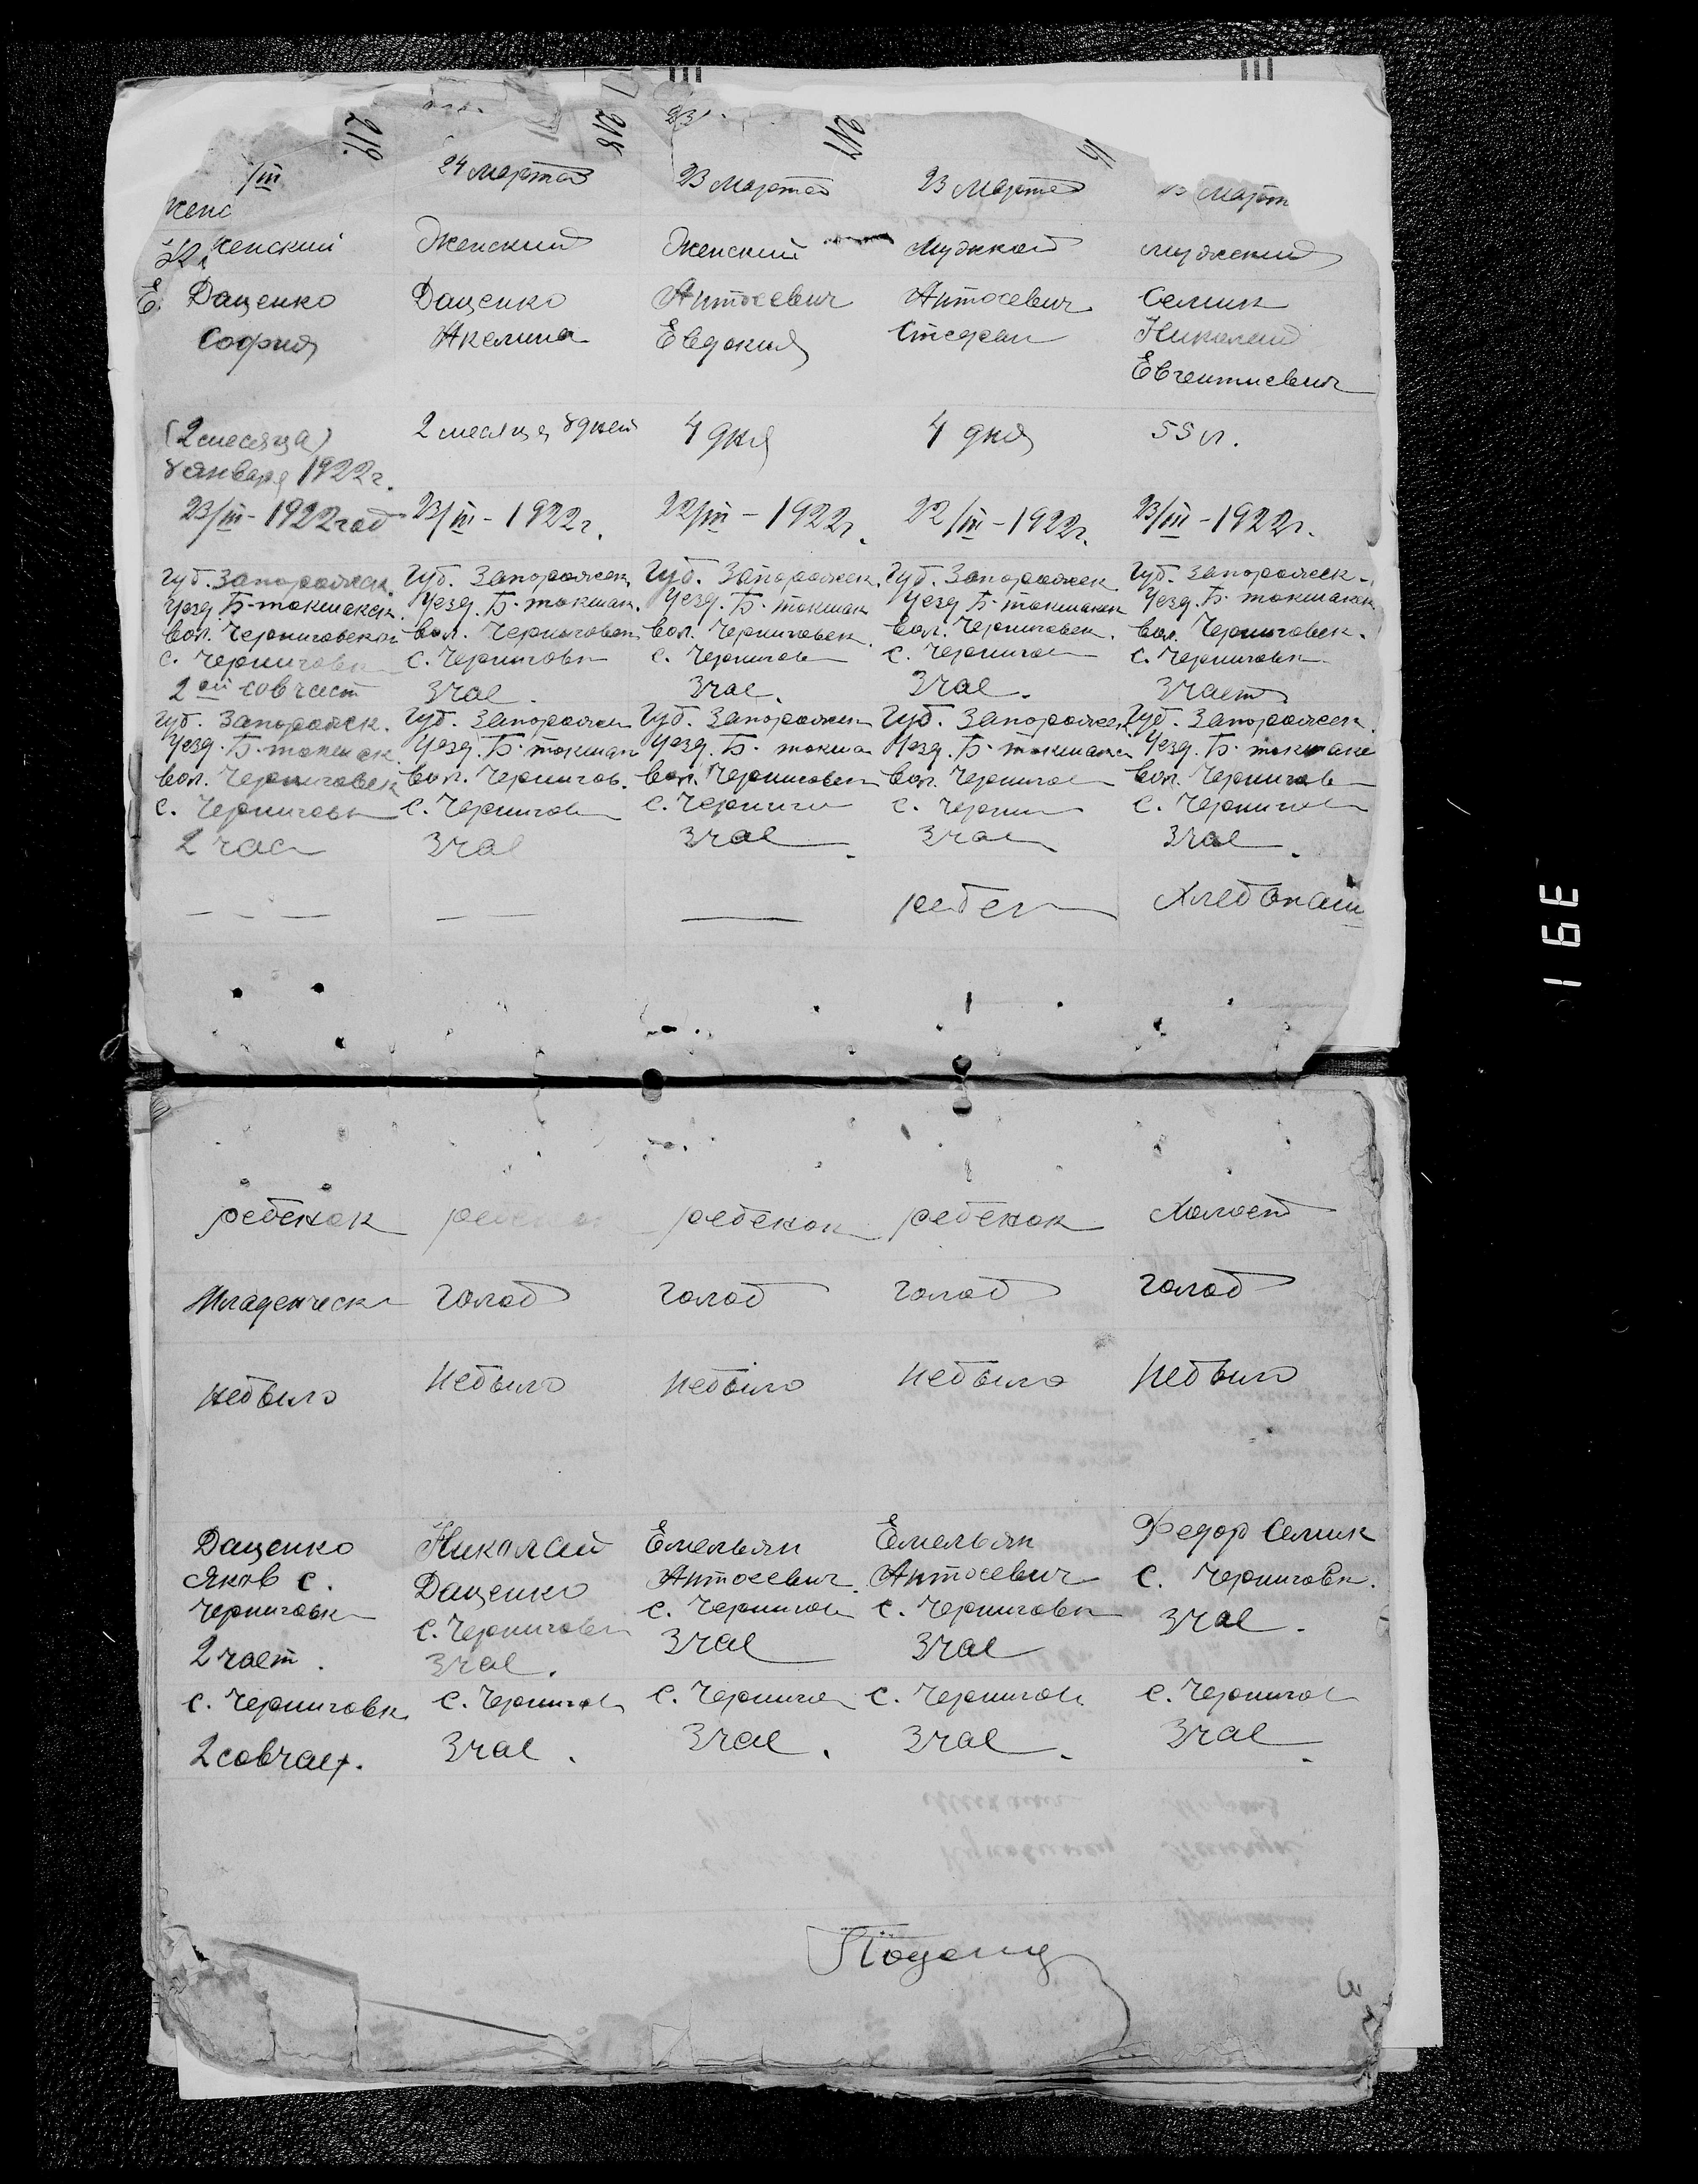 219. 218 217
/III 24 марта 23 марта 23 марта март
женс
женский Женский Женский Мужской мужский
Даценко Даценко Антосевич Антосевич Семик
София Акелина Евдокия Стефан Николай
Евгентиевич
(2 месяца) 2 месяца 8 дней 4 дня 4 дня 55 л.
8 января 1922 г.
23/III - 1922 год 23/III - 1922 г. 22/III - 1922 г. 22/III - 1922 г. 23/III - 1922 г.
Губ. Запорожск. Губ. Запорожск. Губ. Запорожск. Губ. Запорожск Губ. Запорожск.
Уезд. Б-токмакск. Уезд. Б. токмак. Уезд. Б. токмак Уезд. Б. токмакск Уезд. Б. токмакск
вол. Черниговской вол. Черниговск вол. Черниговск. вол. Черниговск. вол. Черниговск.
с. Черниговк с. Черниговк с. Чернигов с. Чернигов с. Черниговк
2ой совчаст 3 час. 3 час. 3 час. 3 част
Губ. Запорожск. Губ. Запорожск Губ. Запорожск Губ. Запорожск Губ. Запорожск.
Уезд. Б. токмак Уезд. Б. токмак Уезд. Б. токма Уезд. Б. токмакск Уезд. Б. токмакс
вол. Черниговск вол. Чернигов. вол. Черниговск вол. Чернигов вол. Чернигов
с. Черниговк с. Чернигов с. Черниги с. Черни с. Чернигов
2 час 3 час 3 час. 3 час 3 час.
— — — — — — ребен Хлебопаш
ребенок ребенок ребенок ребенок Холост
Младенческ голод голод голод голод
небыло небыло небыло небыло небыло
Даценко Николай Емельян Емельян Федор Семик
Яков с. Даценко Антосевич Антосевич с. Черниговк.
Черниговк с. Черниговк с. Чернигов с. Черниговк 3 час.
2 част. 3 час. 3 час 3 час
с. Черниговк с. Чернигов с. Чернигов с. Чернигов с. Чернигов
2 совчаст. 3 час. 3 час. 3 час. 3 час.
1 6 E